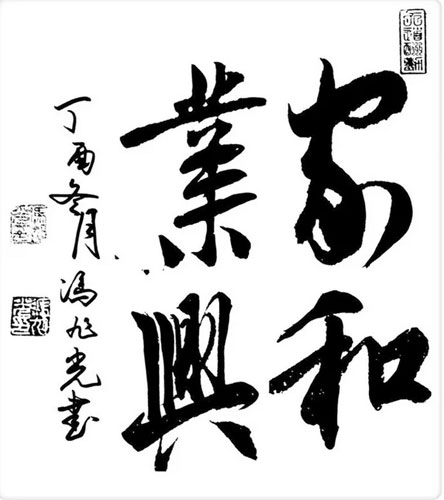 家和
業興
丁酉冬月冯旭光书